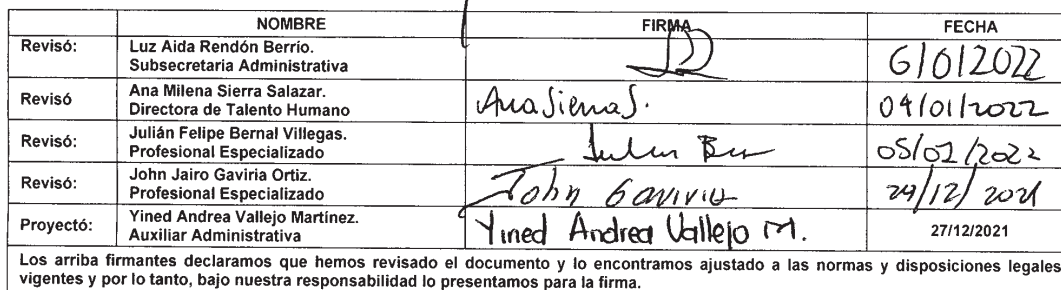 NOMBRE FIRMA FECHA
Revisó: Luz Aida Rendón Berrio.
Subsecretaria Administrativa
6/01/2022
Revisó Ana Milena Sierra Salazar.
Directora de Talento Humano
Ana Sierra S. 04/01/2022
Revisó: Julián Felipe Bernal Villegas.
Profesional Especializado
Julian Ber 05/01/2022
Revisó: John Jairo Gaviria Ortiz.
Profesional Especializado
John Gaviria 29/12/2021
Proyectó: Yined Andrea Vallejo Martínez.
Auxiliar Administrativa
Yined Andrea Vallejo M. 27/12/2021
Los arriba firmantes declaramos que hemos revisado el documento y lo encontramos ajustado a las normas y disposiciones legales
vigentes y por lo tanto, bajo nuestra responsabilidad lo presentamos para la firma.